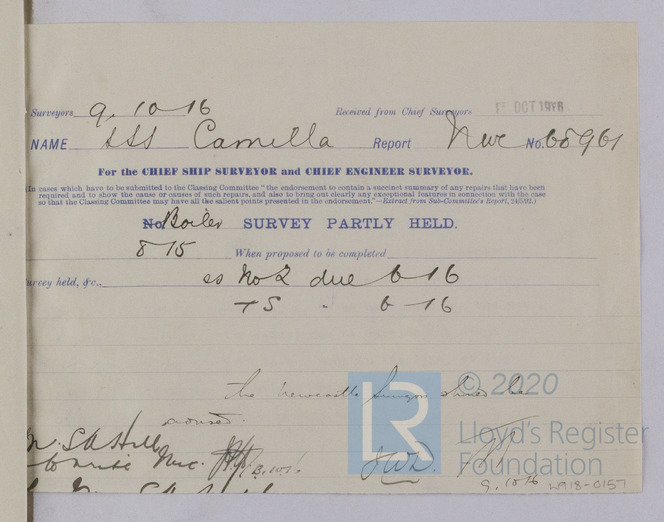 Surveyors 9. 10-16 Received from Chief Surveyors OCT 1916
NAME SSS Camilla Report Nwc No. 68961
For the CHIEF SHIP SURVEYOR and CHIEF ENGINEER SURVEYOR.
In cases which have to be submitted to the Classing Committee "the endorsement to contain a succinct summary of any repairs that have been
required and to show the cause or causes of such repairs, and also to bring out clearly any exceptional features in connection with the case
so that the Classing Committee may have all the salient points presented in the endorsement."—Extract from Sub-Committee's Report,
No Boiler SURVEY PARTLY HELD.
8 15 When proposed to be completed
urvey held, &c., ss No 2 due 6-16
TS " 6-16
The Newcastle be
advised.
Nwc.
JWD
9.10.16
© 2020
LR
Lloyd's Register
Foundation
W918-0157